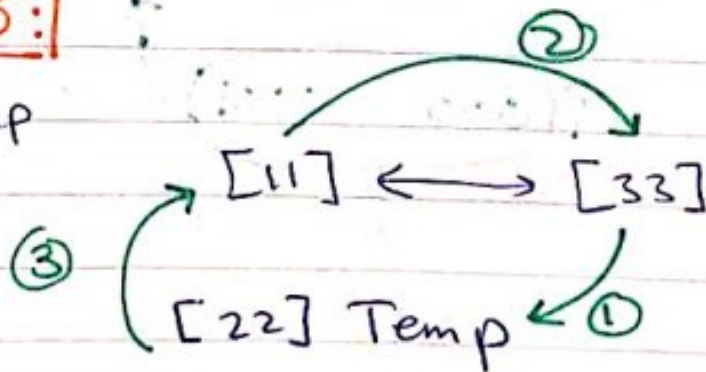 :
②
p
[11] ↔ [33]
③
[22] Temp ①